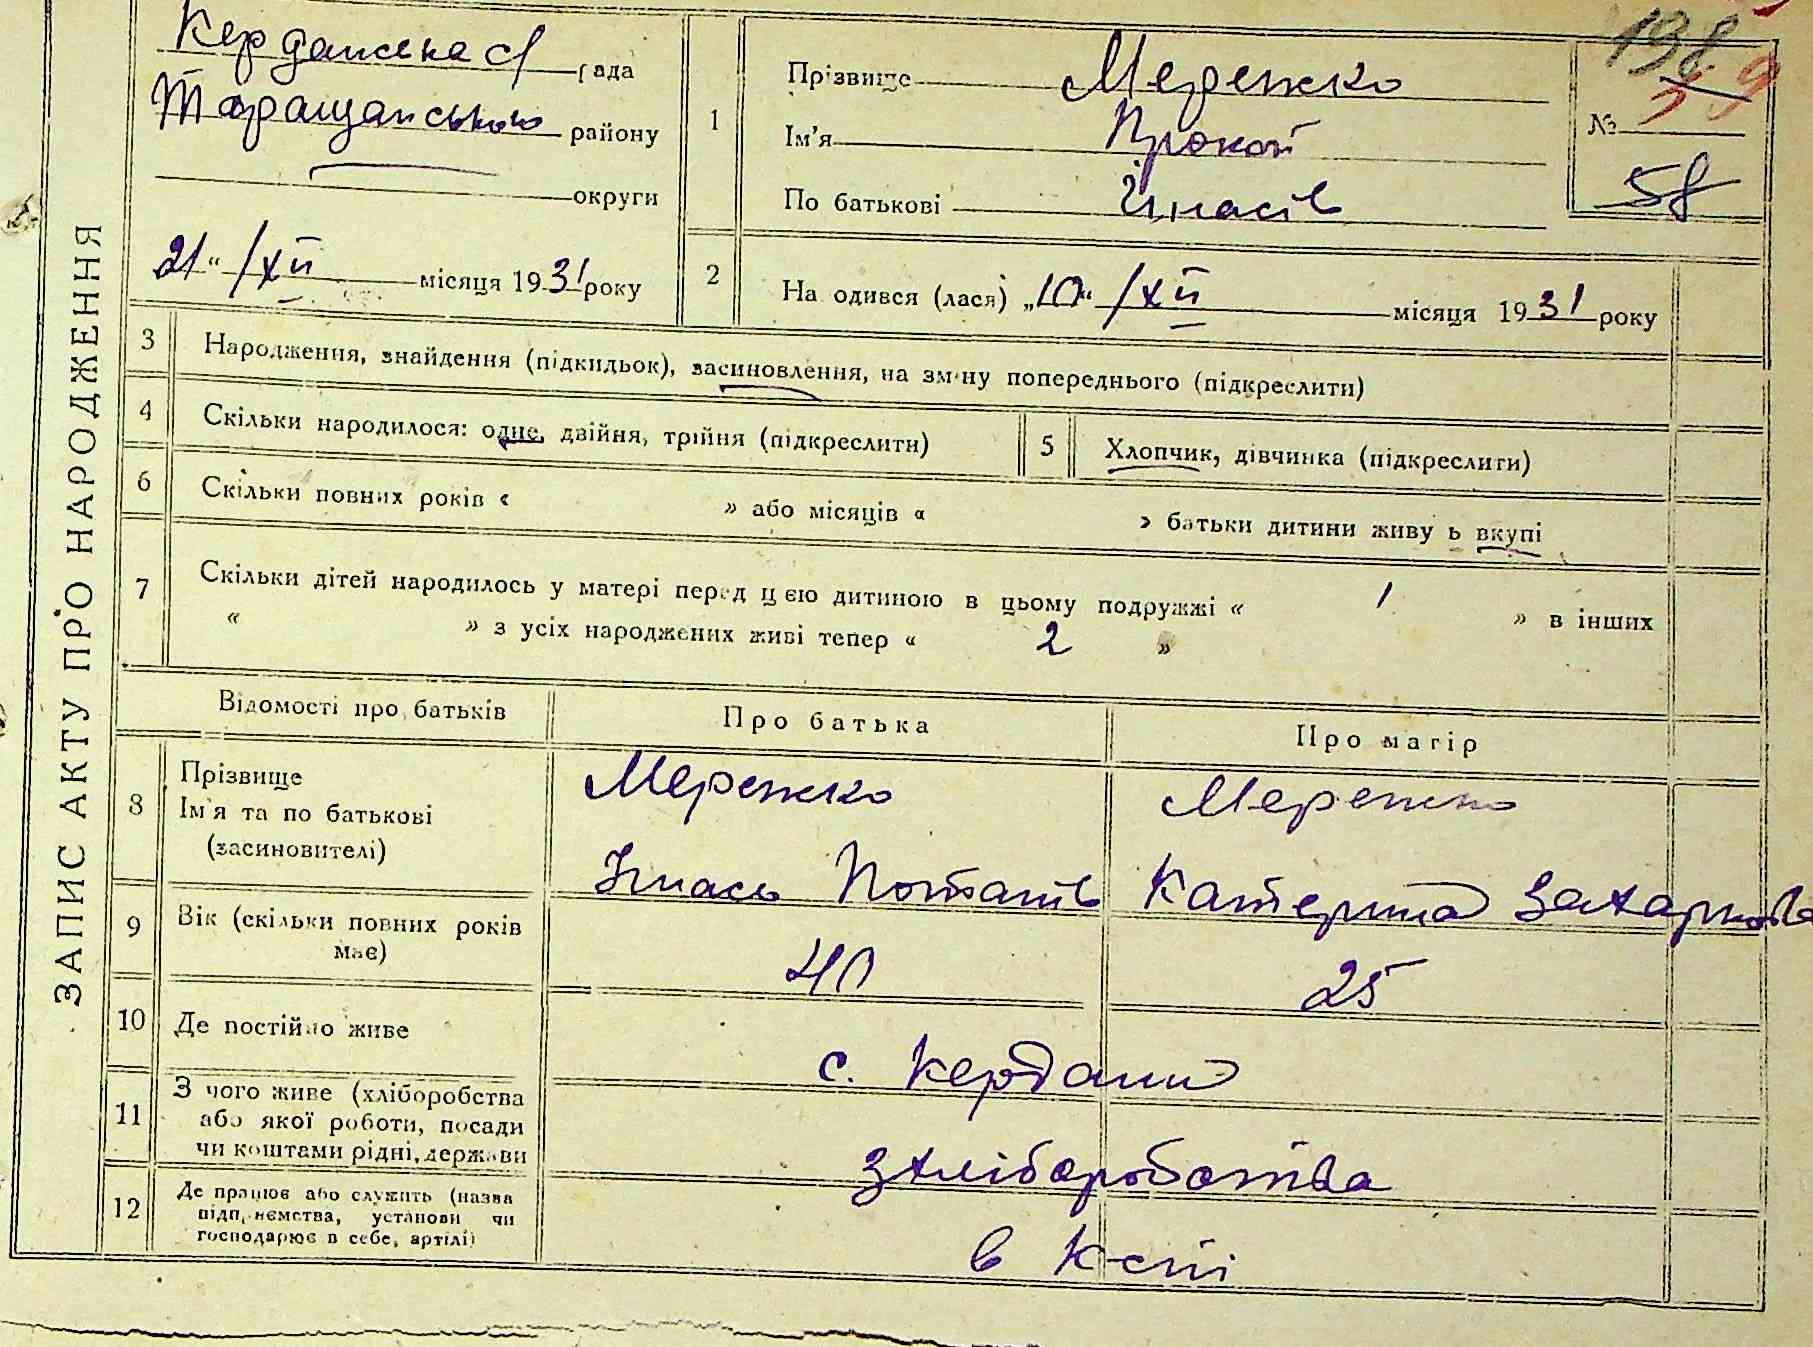 ЗАПИС АКТУ ПРО НАРОДЖЕННЯ
рада
Таращанського району
округи
21 " /XII місяця 1931 року
1
Прізвище Мережко
Ім'я Прокоп
По батькові
198
№
58
2
На одився (лася) „10" /XII місяця 1931 року
3
Народження, знайдення (підкидьок), засиновлення, на зміну попереднього (підкреслити)
4
Скільки народилося: одне, двійня, трійня (підкреслити)
5
Хлопчик, дівчинка (підкреслити)
6
Скільки повних років « » або місяців « » батьки дитини живу ь вкупі
7
Скільки дітей народилось у матері перед цією дитиною в цьому подружжі « 1 » в інших
« » з усіх народжених живі тепер « 2 »
Відомості про батьків
Про батька
Про матір
8
Прізвище
Ім'я та по батькові
(засиновителі)
Мережко
Мережко
Потапів
Катерина Захаркова
9
Вік (скільки повних років
має)
40
25
10
Де постійно живе
с. Кердани
11
З чого живе (хліборобства
або якої роботи, посади
чи коштами рідні, держави
З хліборобства
12
Де працює або служить (назва
підприємства, установи чи
господарює в себе, артілі)
в